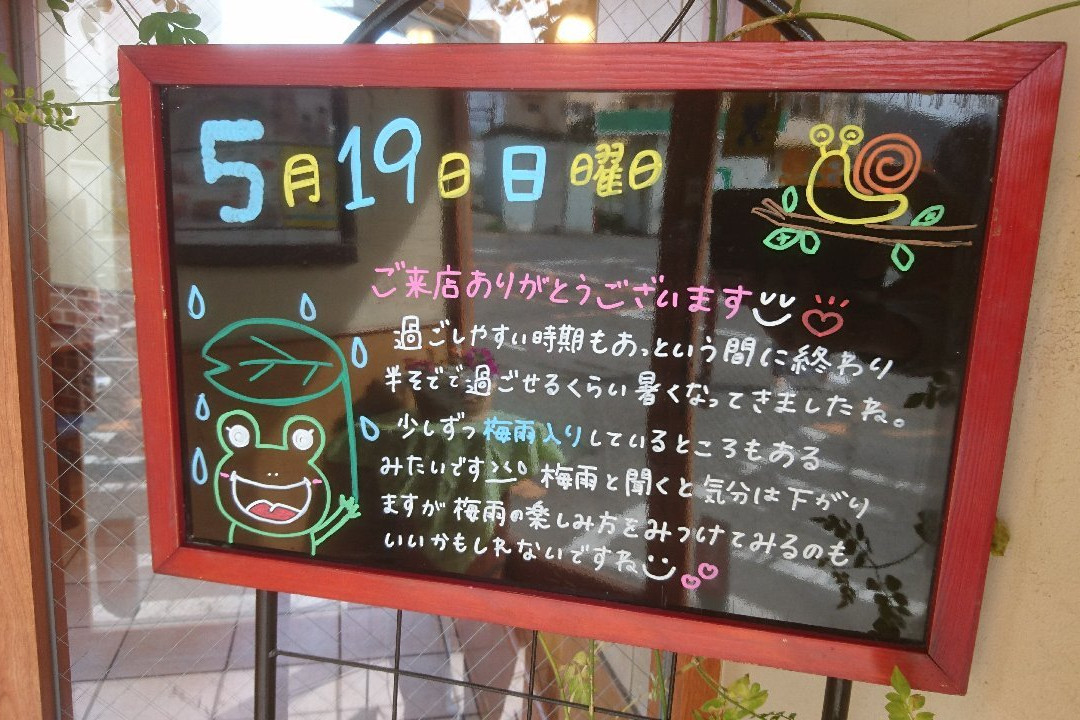 5月19日 日曜日
ご来店ありがとうございます
過ごしやすい時期もあっという間に終わり
半そでで過ごせるくらい暑くなってきましたね。
少しずつ梅雨入りしているところもある
みたいです 梅雨と聞くと気分は下がり
ますが梅雨の楽しみ方をみつけてみるのも
いいかもしれないですね